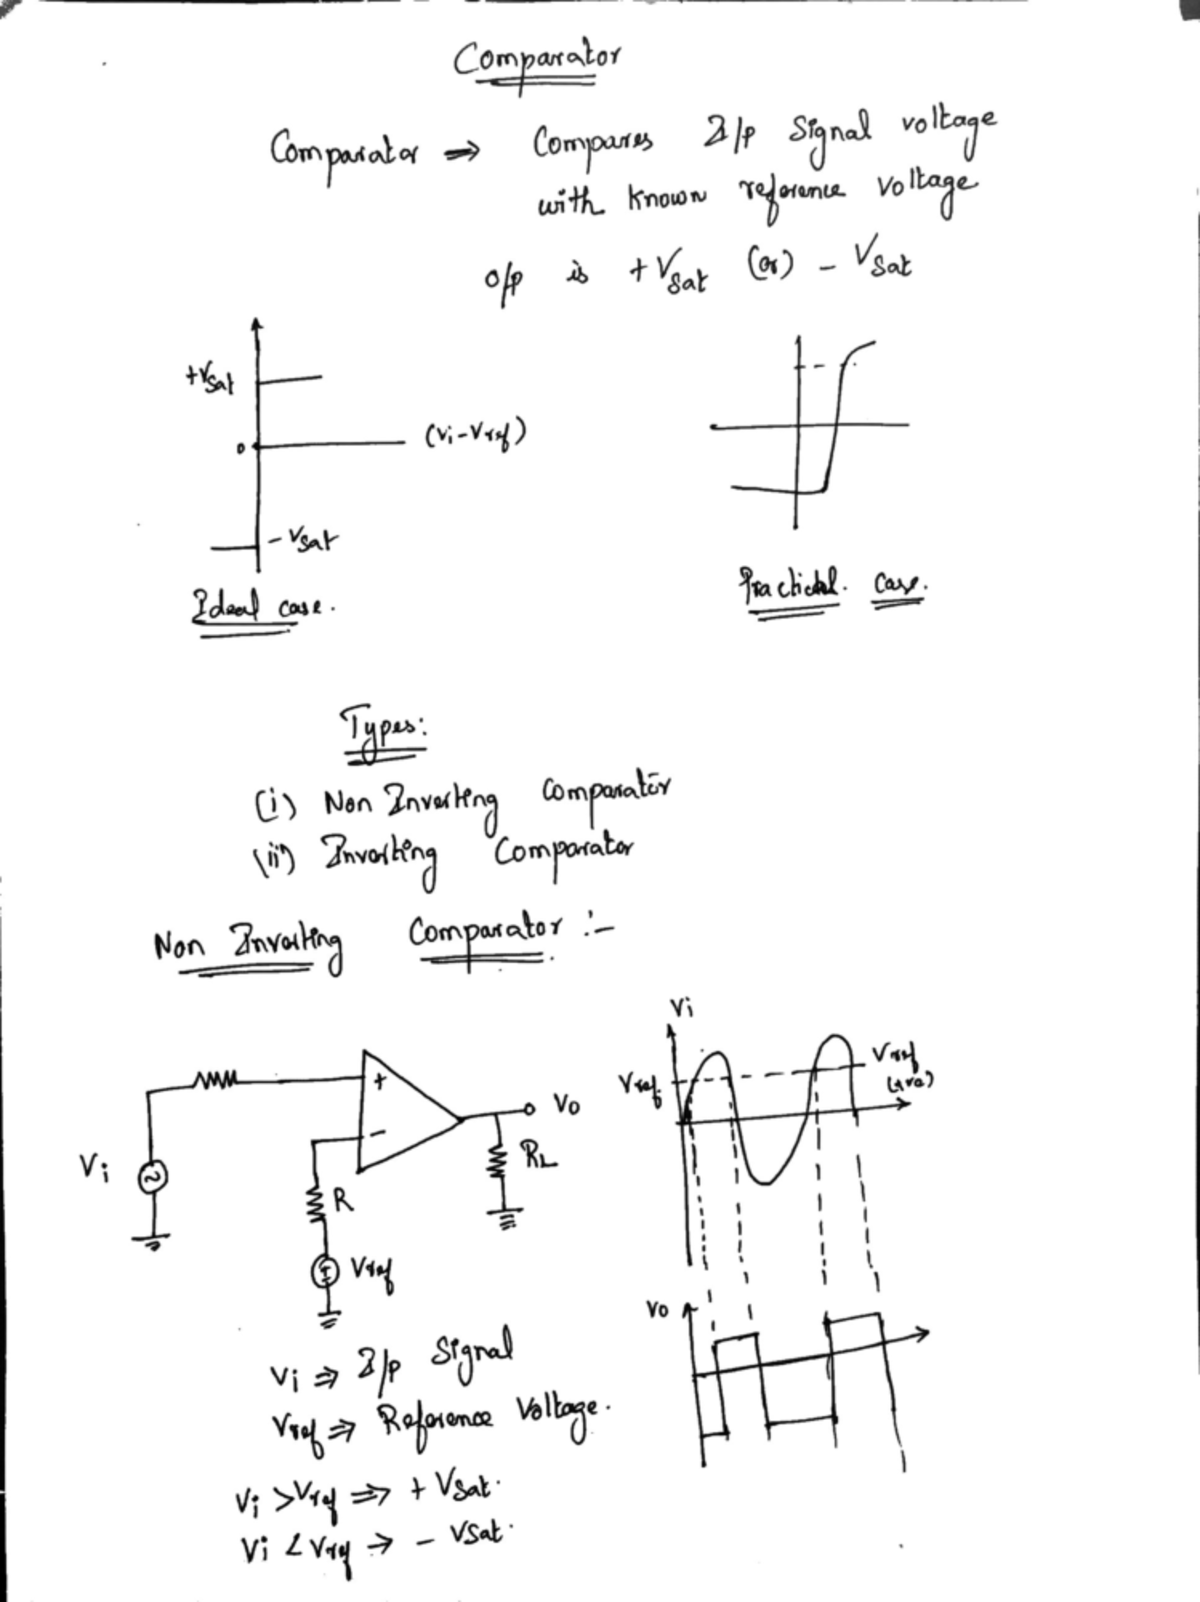 Comparator
Comparator ⇒ Compares I/p Signal voltage
with known reference voltage
o/p is +Vsat (or) - Vsat
+Vsat
0
(Vi-Vref)
- Vsat
Ideal case.
Practical. Case.
Types:
(i) Non Inverting Comparator
(ii) Inverting Comparator
Non Inverting Comparator :-
Vi
Vref
Vref
(+ve)
+
-
Vo
RL
Vi
R
Vref
Vo
Vi ⇒ I/p Signal
Vref ⇒ Reference Voltage.
Vi >Vref ⇒ + Vsat.
Vi <Vref → - Vsat.